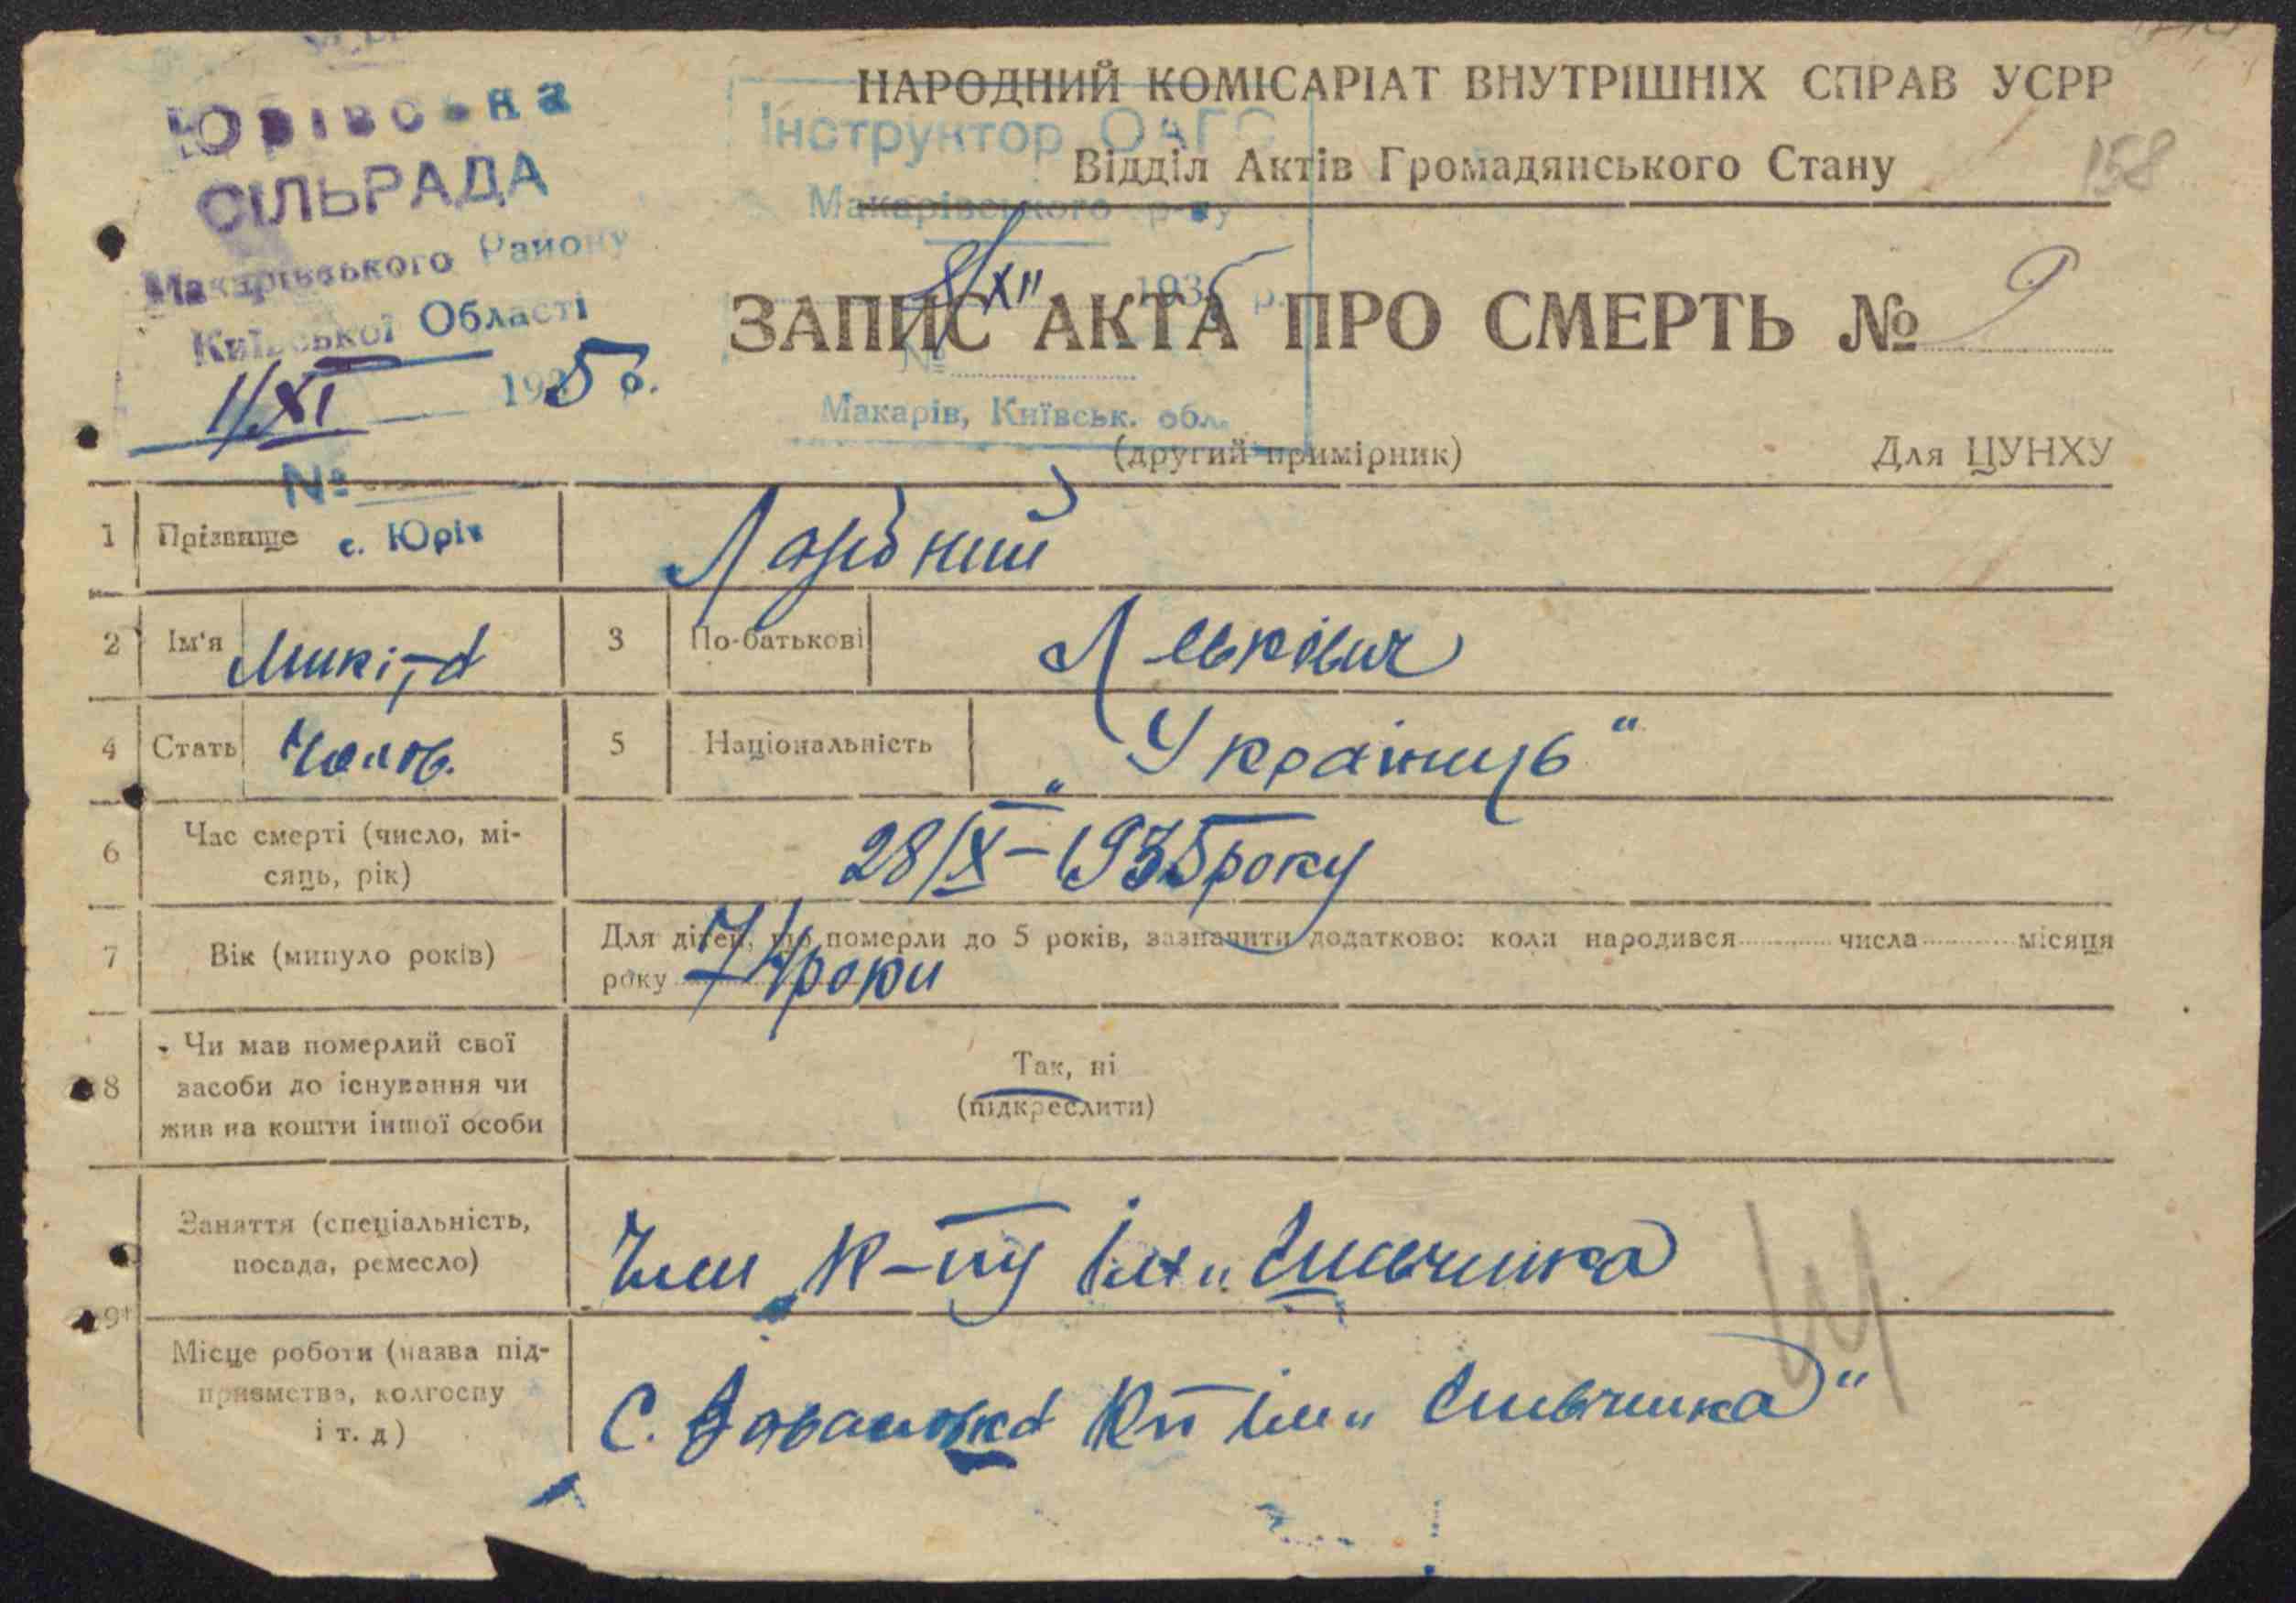 НАРОДНИЙ КОМІСАРІАТ ВНУТРІШНІХ СПРАВ УСРР
Відділ Актів Громадянського Стану
158
Юрівська
СІЛЬРАДА
Макарівського Району
Київської Області
1/XI 1935 р.
№
с. Юрів
Інструктор ОАГС
Макарівського р-ну
8/XII 1935 р.
№
Макарів, Київськ. обл.
ЗАПИС АКТА ПРО СМЕРТЬ № 9
(другий примірник)
Для ЦУНХУ
1 Прізвище
2 Ім'я Микіта 3 По-батькові Левкович
4 Стать Чолов. 5 Національність „Українець“
6 Час смерті (число, мі-
сяць, рік) 28/X – 1935 року
7 Вік (минуло років) Для дітей, що померли до 5 років, зазначити додатково: коли народився числа місяця
року 74 роки
8 Чи мав померлий свої
засоби до існування чи
жив на кошти іншої особи
Так, ні
(підкреслити)
9 Заняття (спеціальність,
посада, ремесло) Член к-пу Ім „
Місце роботи (назва під-
приємства, колгоспу
і т. д) С. Кп Ім „